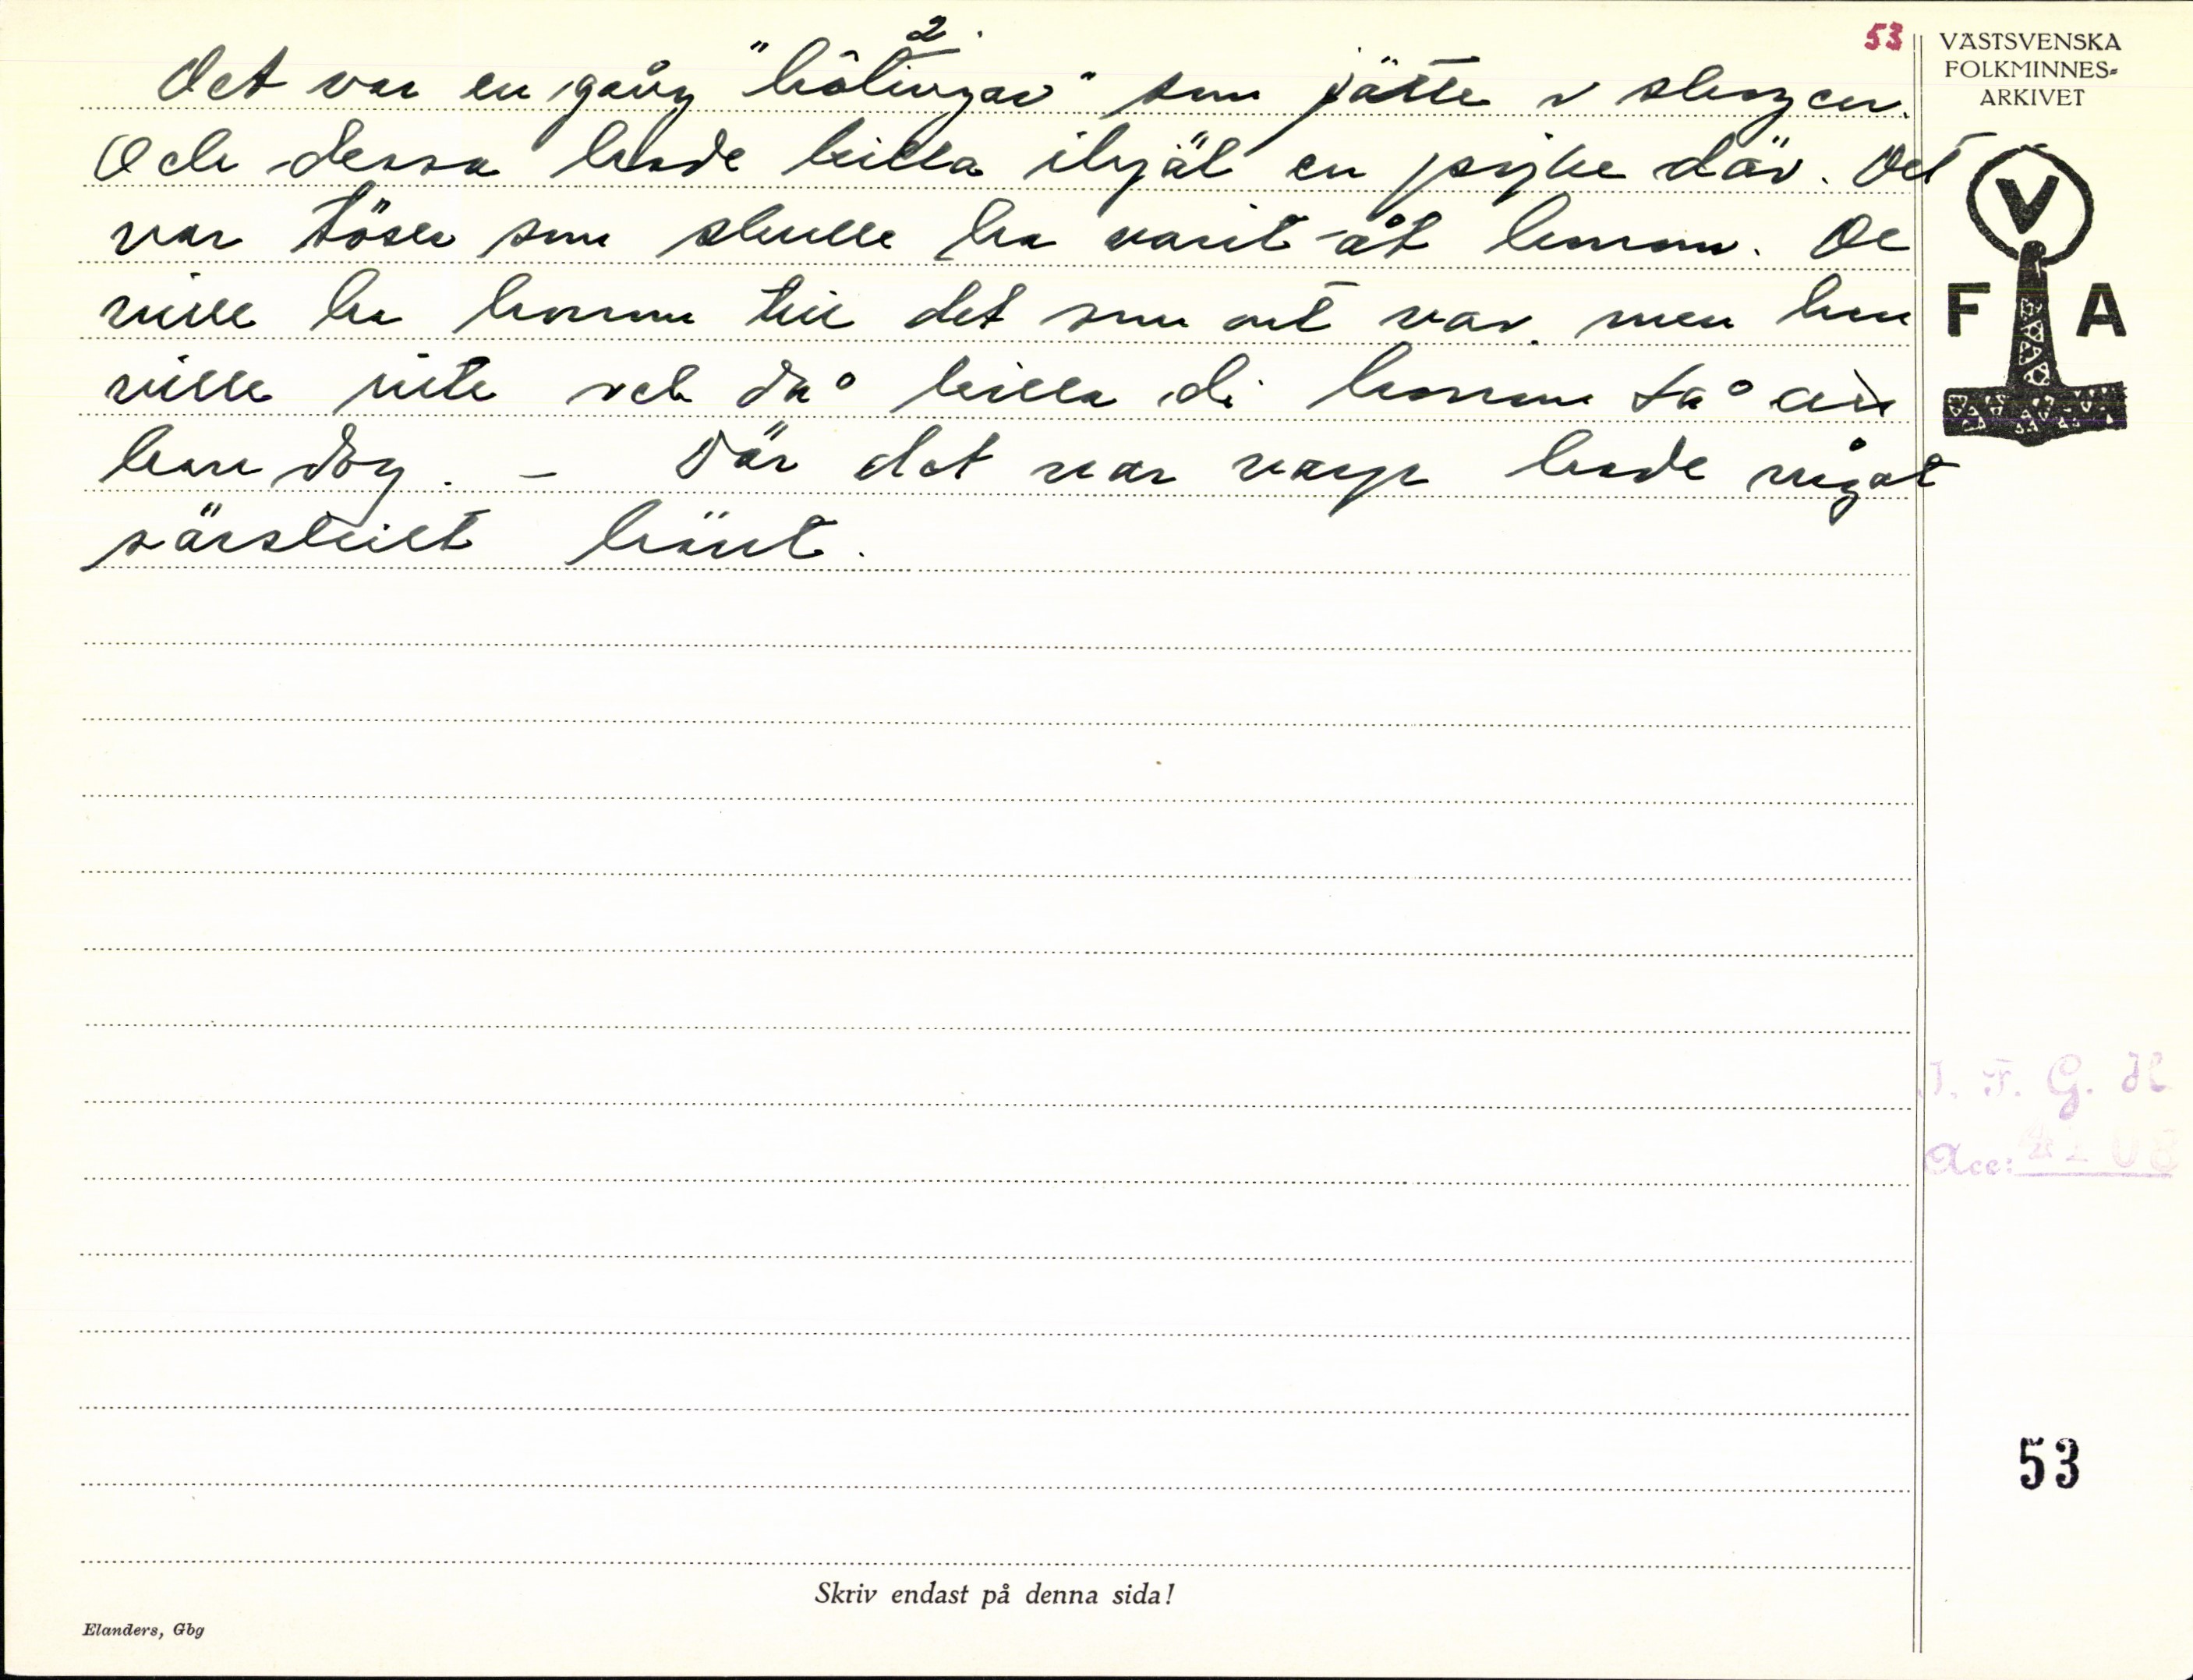 2.
53
Det var en gång "hôlingar" som jätte i skogen.
Och dessa hade killa ihjäl en pojke där. Det
var töser som skulle ha varit åt honom. De
ville ha honom till det som ont var, men han
ville inte och då killa di honom så att
han dog. – Där det var varp hade något
särskilt hänt.
VÄSTSVENSKA
FOLKMINNES-
ARKIVET
V
F A
I. F. G. H
Acc:
53
Skriv endast på denna sida!
Elanders, Gbg